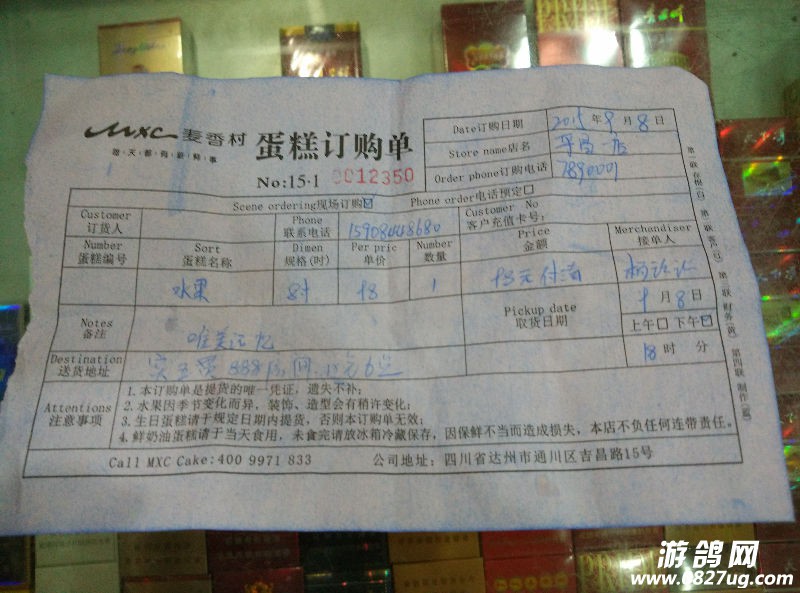 MXC 麦香村
蛋糕订购单
No:15-1 0012350
Date订购日期 2015年9月8日
Store name店名 平昌一店
Order phone订购电话 7890001
Scene ordering现场订购☑ Phone order电话预定□
Customer 订货人 Phone 联系电话 15908448680 Customer No 客户充值卡号:
Number 蛋糕编号 Sort 蛋糕名称 Dimen 规格(吋) Per pric 单价 Number 数量 Price 金额 Merchandiser 接单人
水果 8吋 98 1 98元付清
Notes 备注 唯美记忆 Pickup date 取货日期 9月8日
上午□ 下午☑
Destination 送货地址 888房间 18时 分
Attentions 注意事项
1. 本订购单是提货的唯一凭证,遗失不补;
2. 水果因季节变化而异,装饰、造型会有稍许变化;
3. 生日蛋糕请于规定日期内提货,否则本订购单无效;
4. 鲜奶油蛋糕请于当天食用,未食完请放冰箱冷藏保存,因保鲜不当而造成损失,本店不负任何连带责任。
Call MXC Cake:400 9971 833 公司地址:四川省达州市通川区吉昌路15号
游鸽网
www.0827ug.com